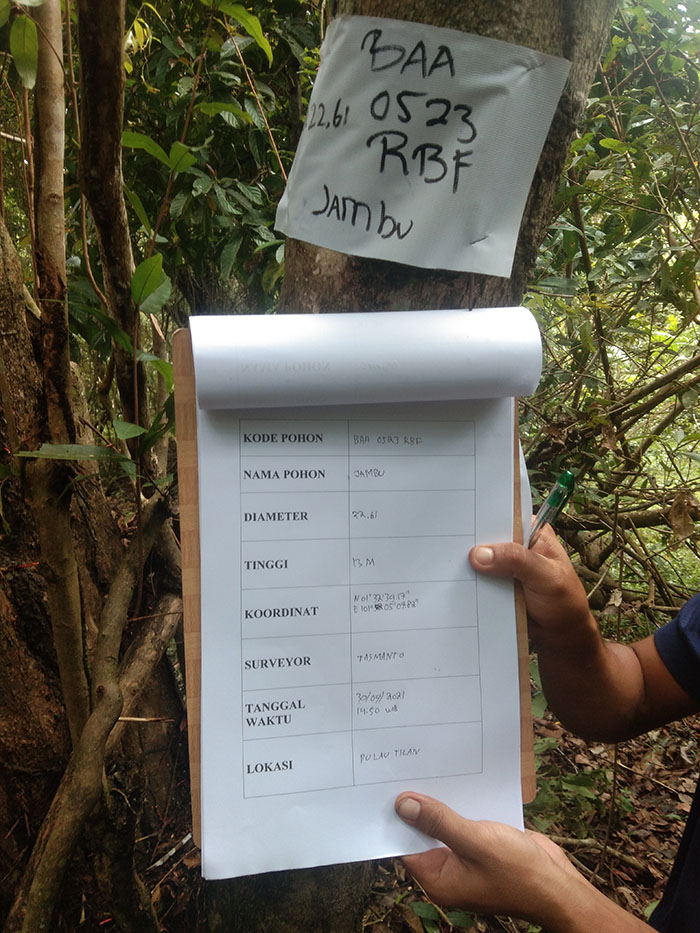 BAA
22,61 0523
RBF
Jambu
KODE POHON BAA 0523 RBF
NAMA POHON JAMBU
DIAMETER 22,61
TINGGI 13 M
KOORDINAT N 01° 32' 39.17"
E 101° 05' 09.82"
SURVEYOR TASMANTO
TANGGAL 30/09/2021
WAKTU 14.50 WIB
LOKASI PULAU TILAN